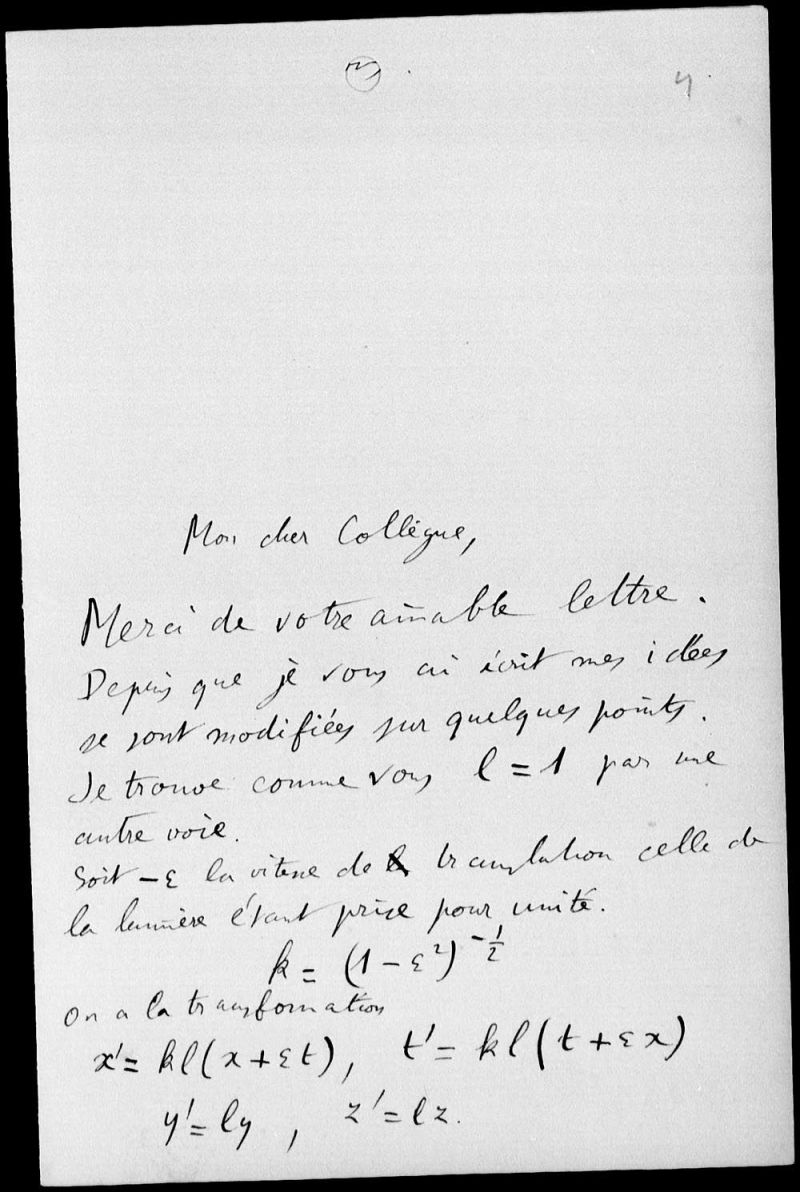 4
Mon cher Collègue,
Merci de votre aimable lettre.
Depuis que je vous ai écrit mes idées
se sont modifiées sur quelques points.
Je trouve comme vous l = 1 par une
autre voie.
Soit -ε la vitesse de translation celle de
la lumière étant prise pour unité.
k = (1 - ε²)^{-1/2}
On a la transformation
x' = kl(x + εt), t' = kl(t + εx)
y' = ly, z' = lz.